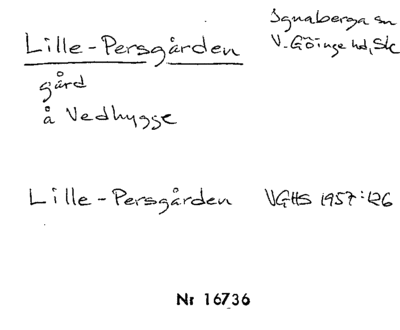 Lille-Persgården
Ignaberga sn
V. Göinge hd, Sk
gård
å Vedhygge
Lille-Persgården VGHS 1957:126
Nr 16736